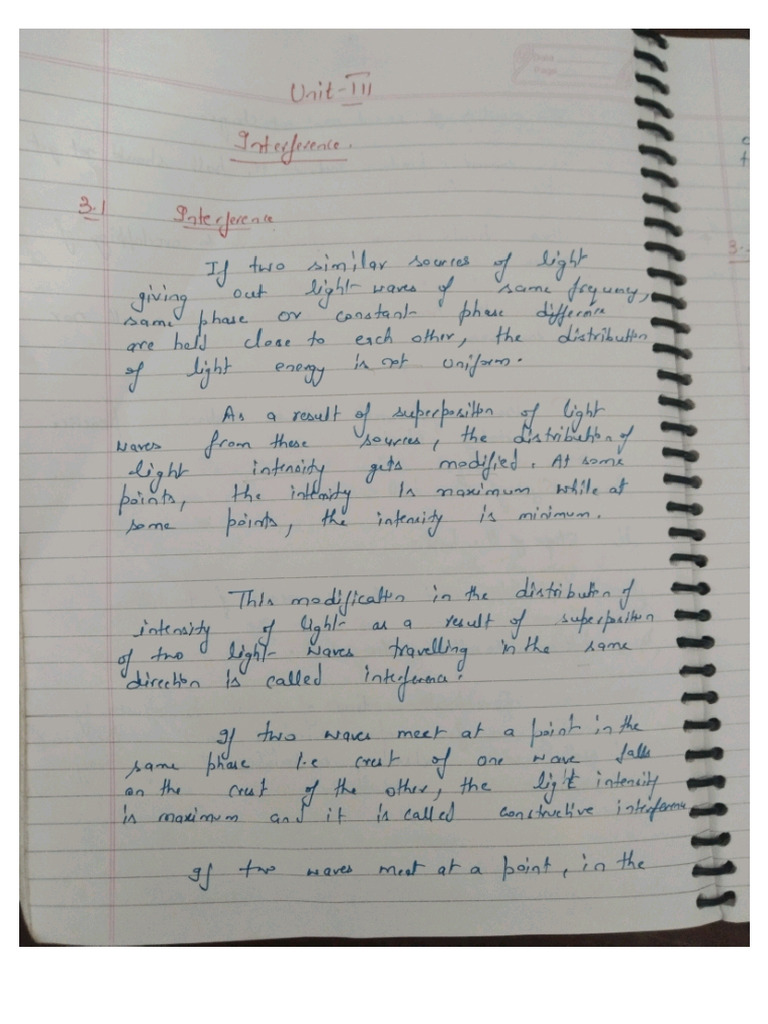 Unit-III
Interference.
3.1 Interference
If two similar sources of light
giving out light waves of same frequency,
same phase or constant phase difference
are held close to each other, the distribution
of light energy is not uniform.
As a result of superposition of light
waves from these sources, the distribution of
light intensity gets modified. At some
points, the intensity is maximum while at
some points, the intensity is minimum.
This modification in the distribution of
intensity of light as a result of superposition
of two light waves travelling in the same
direction is called interference.
If two waves meet at a point in the
same phase i.e crest of one wave falls
on the crest of the other, the light intensity
is maximum and it is called constructive interference
If two waves meet at a point, in the
3.